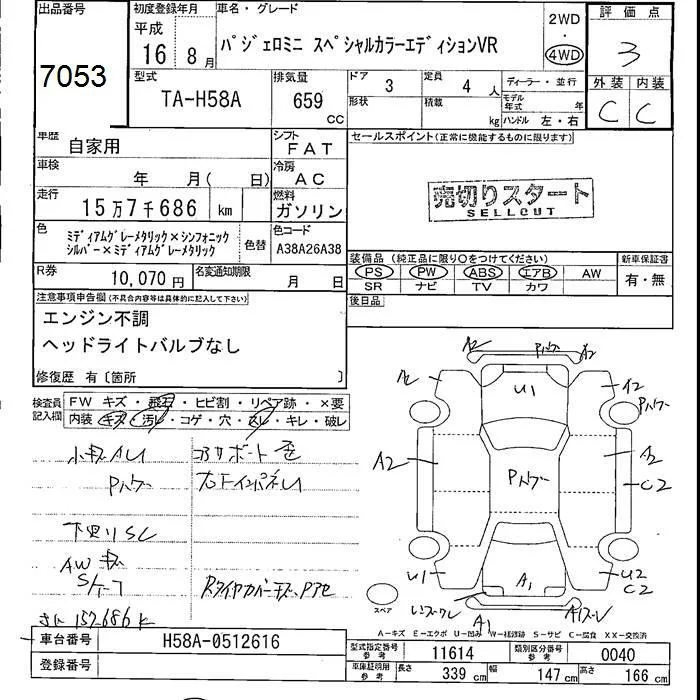 出品番号
7053
初度登録年月
平成
16 8月
車名・グレード
パジェロミニ スペシャルカラーエディションVR
2WD
4WD
評価点
3
外装 内装
C C
型式
TA-H58A
排気量
659
CC
ドア
3
定員
4 人
形状
積載
kg
ディーラー・並行
モデル年式 年
ハンドル 左・右
車歴
自家用
シフト
FAT
車検
年 月( 日)
冷房
AC
走行
15万7千686 km
燃料
ガソリン
色
ミディアムグレーメタリック×シンフォニック
シルバー×ミディアムグレーメタリック
色替
色コード
A38A26A38
R券
10,070円
名変通知期限
月 日
セールスポイント(正常に機能するものに限ります)
売切りスタート
SELLOUT
装備品(純正品に限り○をつけてください)
PS PW ABS エアB AW
SR ナビ TV カワ
新車保証書
有・無
後日品
注意事項申告欄(不具合内容等は具体的に記入して下さい)
エンジン不調
ヘッドライトバルブなし
修復歴 有〔箇所 〕
検査員
記入欄
FW キズ・飛石・ヒビ割・リペア跡・×要
内装 キズ・汚レ・コゲ・穴・スレ・キレ・破レ
小キズAレ
Pハゲ
下廻りSC
AW キズ
A2 Pハゲ A2
A2 U1 A2
Pハゲ
A2 Pハゲ A2
C2
U1 A1 U2
C2
スペア
A1
A-キズ E-エクボ U-凹み W-補修跡 S-サビ C-腐食 XX-交換済
車台番号
H58A-0512616
登録番号
型式指定番号
参考
11614
類別区分番号
参考
0040
車庫証明用
参考
長さ 339 cm 幅 147 cm 高さ 166 cm